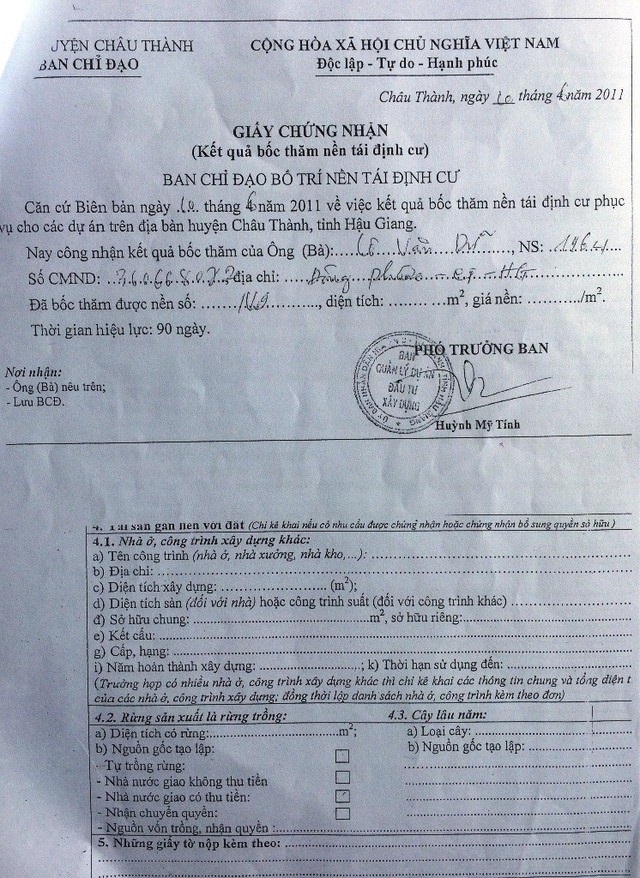 UYỆN CHÂU THÀNH
BAN CHỈ ĐẠO
CỘNG HÒA XÃ HỘI CHỦ NGHĨA VIỆT NAM
Độc lập - Tự do - Hạnh phúc
Châu Thành, ngày 10 tháng 6 năm 2011
GIẤY CHỨNG NHẬN
(Kết quả bốc thăm nền tái định cư)
BAN CHỈ ĐẠO BỐ TRÍ NỀN TÁI ĐỊNH CƯ
Căn cứ Biên bản ngày 10 tháng 6 năm 2011 về việc kết quả bốc thăm nền tái định cư phục
vụ cho các dự án trên địa bàn huyện Châu Thành, tỉnh Hậu Giang.
Nay công nhận kết quả bốc thăm của Ông (Bà):...Lê Văn ......, NS: .1964...
Số CMND: ........ địa chỉ: ...Đông Phước.......
Đã bốc thăm được nền số: ........, diện tích: ...........m², giá nền: .........../m².
Thời gian hiệu lực: 90 ngày.
Nơi nhận:
- Ông (Bà) nêu trên;
- Lưu BCĐ.
PHÓ TRƯỞNG BAN
BAN
QUẢN LÝ DỰ ÁN
ĐẦU TƯ
XÂY DỰNG
Huỳnh Mỹ Tính
4. Tài sản gắn liền với đất (Chỉ kê khai nếu có nhu cầu được chứng nhận hoặc chứng nhận bổ sung quyền sở hữu )
4.1. Nhà ở, công trình xây dựng khác:
a) Tên công trình (nhà ở, nhà xưởng, nhà kho,...): ........
b) Địa chỉ: ........
c) Diện tích xây dựng: ........ (m²);
d) Diện tích sàn (đối với nhà) hoặc công trình suất (đối với công trình khác) ........
đ) Sở hữu chung: ........m², sở hữu riêng:........
e) Kết cấu: ........
g) Cấp, hạng: ........
i) Năm hoàn thành xây dựng: ........; k) Thời hạn sử dụng đến: ........
(Trường hợp có nhiều nhà ở, công trình xây dựng khác thì chỉ kê khai các thông tin chung và tổng diện t
của các nhà ở, công trình xây dựng; đồng thời lập danh sách nhà ở, công trình kèm theo đơn)
4.2. Rừng sản xuất là rừng trồng:
a) Diện tích có rừng:........m²;
b) Nguồn gốc tạo lập:
- Tự trồng rừng:
- Nhà nước giao không thu tiền
- Nhà nước giao có thu tiền:
- Nhận chuyển quyền:
- Nguồn vốn trồng, nhận quyền :........
4.3. Cây lâu năm:
a) Loại cây: ........
b) Nguồn gốc tạo lập: ........
5. Những giấy tờ nộp kèm theo: ........